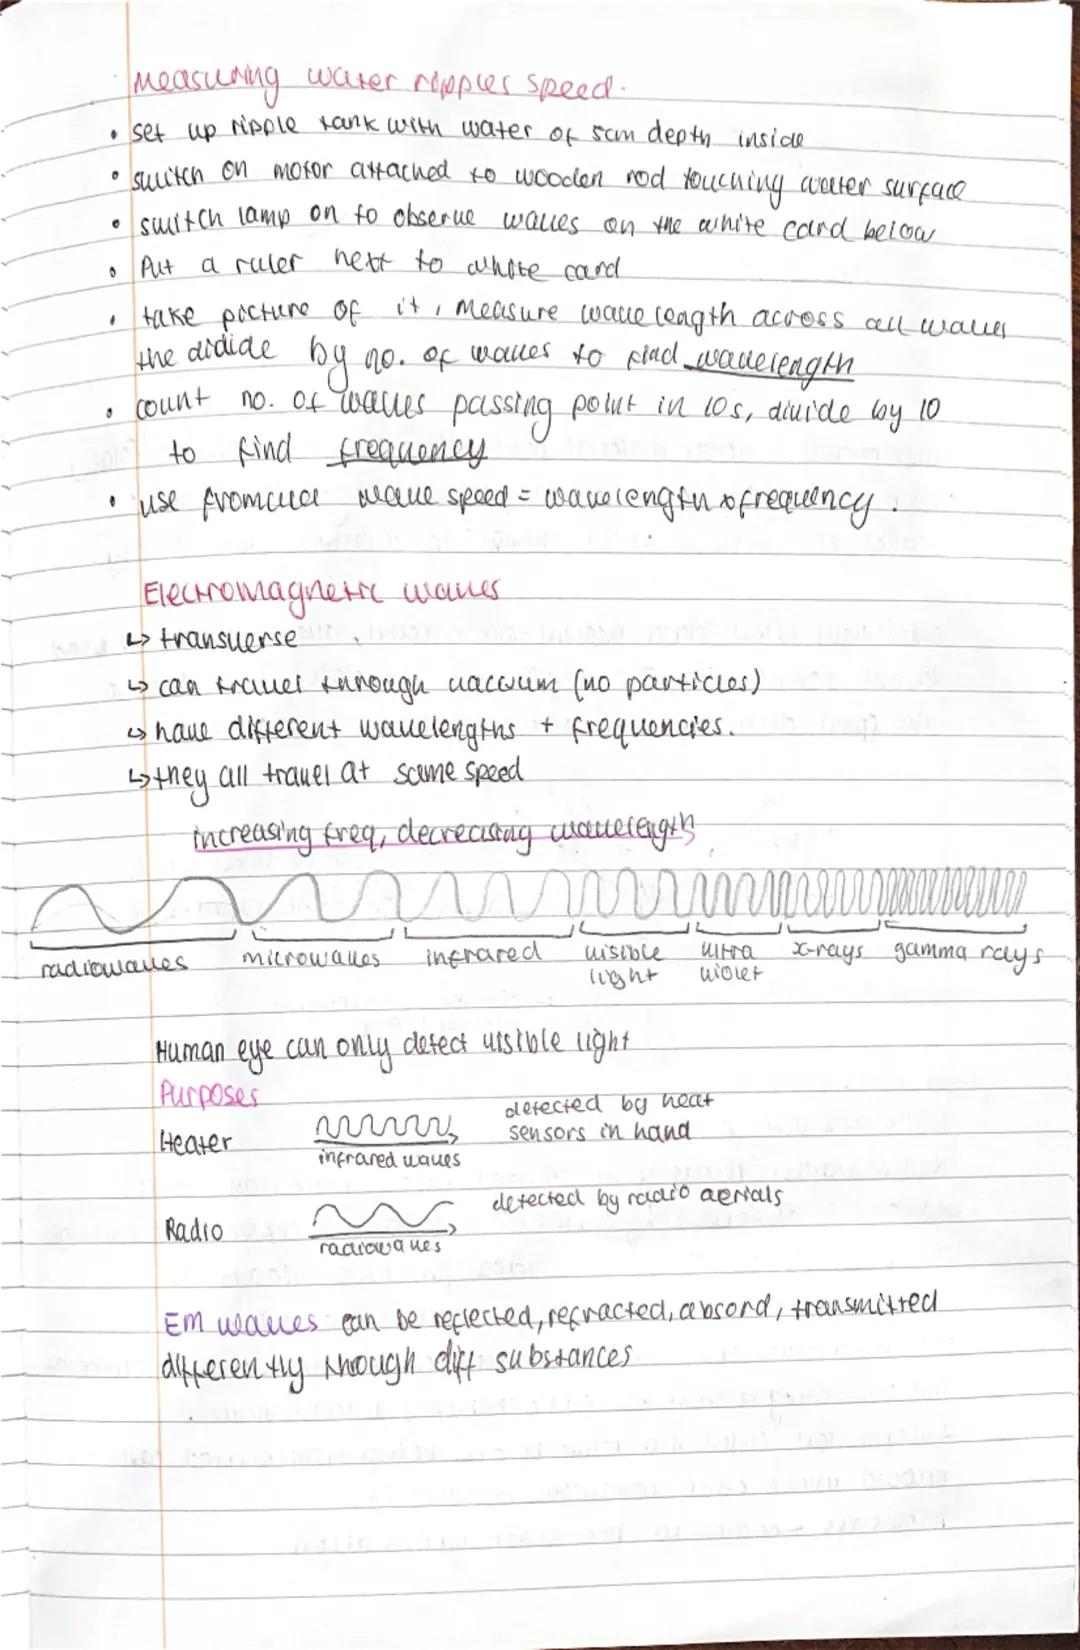 Measuring water ripples speed.
• set up ripple tank with water of 5cm depth inside
• switch on motor attached to wooden rod touching water surface
• switch lamp on to observe waves on the white card below
• Put a ruler next to white card
• take picture of it, measure wavelength across all waves
the divide by no. of waves to find wavelength
• count no. of waves passing point in 10s, divide by 10
to find frequency
• use fromula wave speed = wavelength x frequency.
Electromagnetic waves
↳ transverse
↳ can travel through vaccum (no particles)
↳ have different wavelengths + frequencies.
↳ they all travel at same speed
increasing freq, decreasing wavelength
radiowaves microwaves infrared visible ultra x-rays gamma rays
light violet
Human eye can only detect visible light
Purposes
Heater detected by heat
sensors in hand
infrared waves
Radio detected by radio aerials
radiowaves
EM waves can be reflected, refracted, absord, transmitted
differently through diff substances